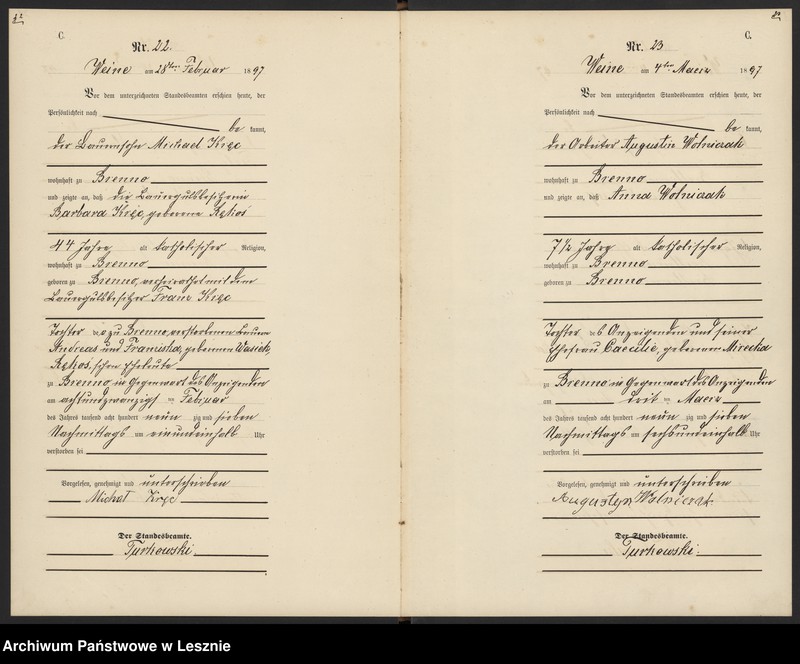 22
C.
Nr. 22.
Weine am 28ten Februar 1897
Vor dem unterzeichneten Standesbeamten erschien heute, der
Persönlichkeit nach
be kannt,
der Bauernsohn Michael Kręc
wohnhaft zu Brenno
und zeigte an, daß die Bauergutsbesitzerin
Barbara Kręc, geborene Rękos
44 Jahre alt katholischer Religion,
wohnhaft zu Brenno
geboren zu Brenno, verheirathet mit dem
Bauergutsbesitzer Franz Kręc
Tochter der zu Brenno, verstorbenen Bauer
Andreas und Franziska, geborenen Wasiek,
Rękos, schen Eheleute
zu Brenno in Gegenwart des Anzeigenden
am achtundzwanzigsten Februar
des Jahres tausend acht hundert neun zig und sieben
Nachmittags um einundeinhalb Uhr
verstorben sei
Vorgelesen, genehmigt und unterschrieben
Michał Kręc
Der Standesbeamte.
Turkowski
C.
Nr. 23
Weine am 4ten Maerz 1897
Vor dem unterzeichneten Standesbeamten erschien heute, der
Persönlichkeit nach
be kannt,
der Arbeiter Augustin Wolniczak
wohnhaft zu Brenno
und zeigte an, daß Anna Wolniczak
7 1/2 Jahre alt katholischer Religion,
wohnhaft zu Brenno
geboren zu Brenno
Tochter des Anzeigenden und seiner
Ehefrau Caecilie, geborenen Mirecka
zu Brenno in Gegenwart des Anzeigenden
am Maerz
des Jahres tausend acht hundert neun zig und sieben
Nachmittags um sechsundeinhalb Uhr
verstorben sei
Vorgelesen, genehmigt und unterschrieben
Augustyn Wolniczak
Der Standesbeamte.
Turkowski.
Archiwum Państwowe w Lesznie